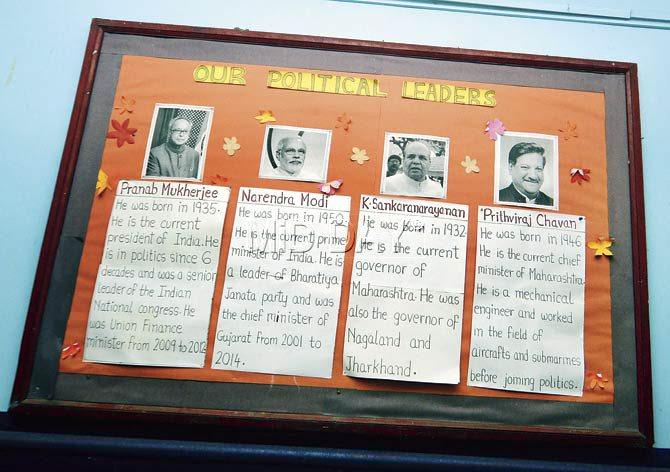 OUR POLITICAL LEADERS
Pranab Mukherjee
He was born in 1935.
He is the current
president of India. He
is in politics since 6
decades and was a senior
Leader of the Indian
National congress. He
was Union Finance
minister from 2009 to 2012
Narendra Modi
He was born in 1950.
He is the current prime
minister of India. He is
a leader of Bharatiya
Janata party and was
the chief minister of
Gujarat from 2001 to
2014.
K.Sankaranarayanan
He was born in 1932
He is the current
governor of
Maharashtra. He was
also the governor of
Nagaland and
Jharkhand.
Prithviraj Chavan
He was born in 1946
He is the current chief
minister of Maharashtra.
He is a mechanical
engineer and worked
in the field of
aircrafts and submarines
before joming politics.
MiD DAY